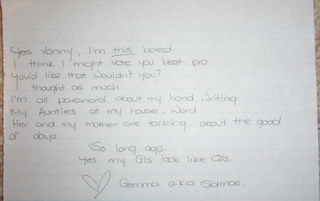 Yes Vonny, I'm this bored.
I think I might vote you best pro.
You'd like that wouldn't you?
I thought as much.
I'm all paranoid about my hand writing.
My Aunties at my house, word.
Her and my mother are talking about the good
ol' days.
So long ago.
Yes my G's look like
Gemma a.k.a